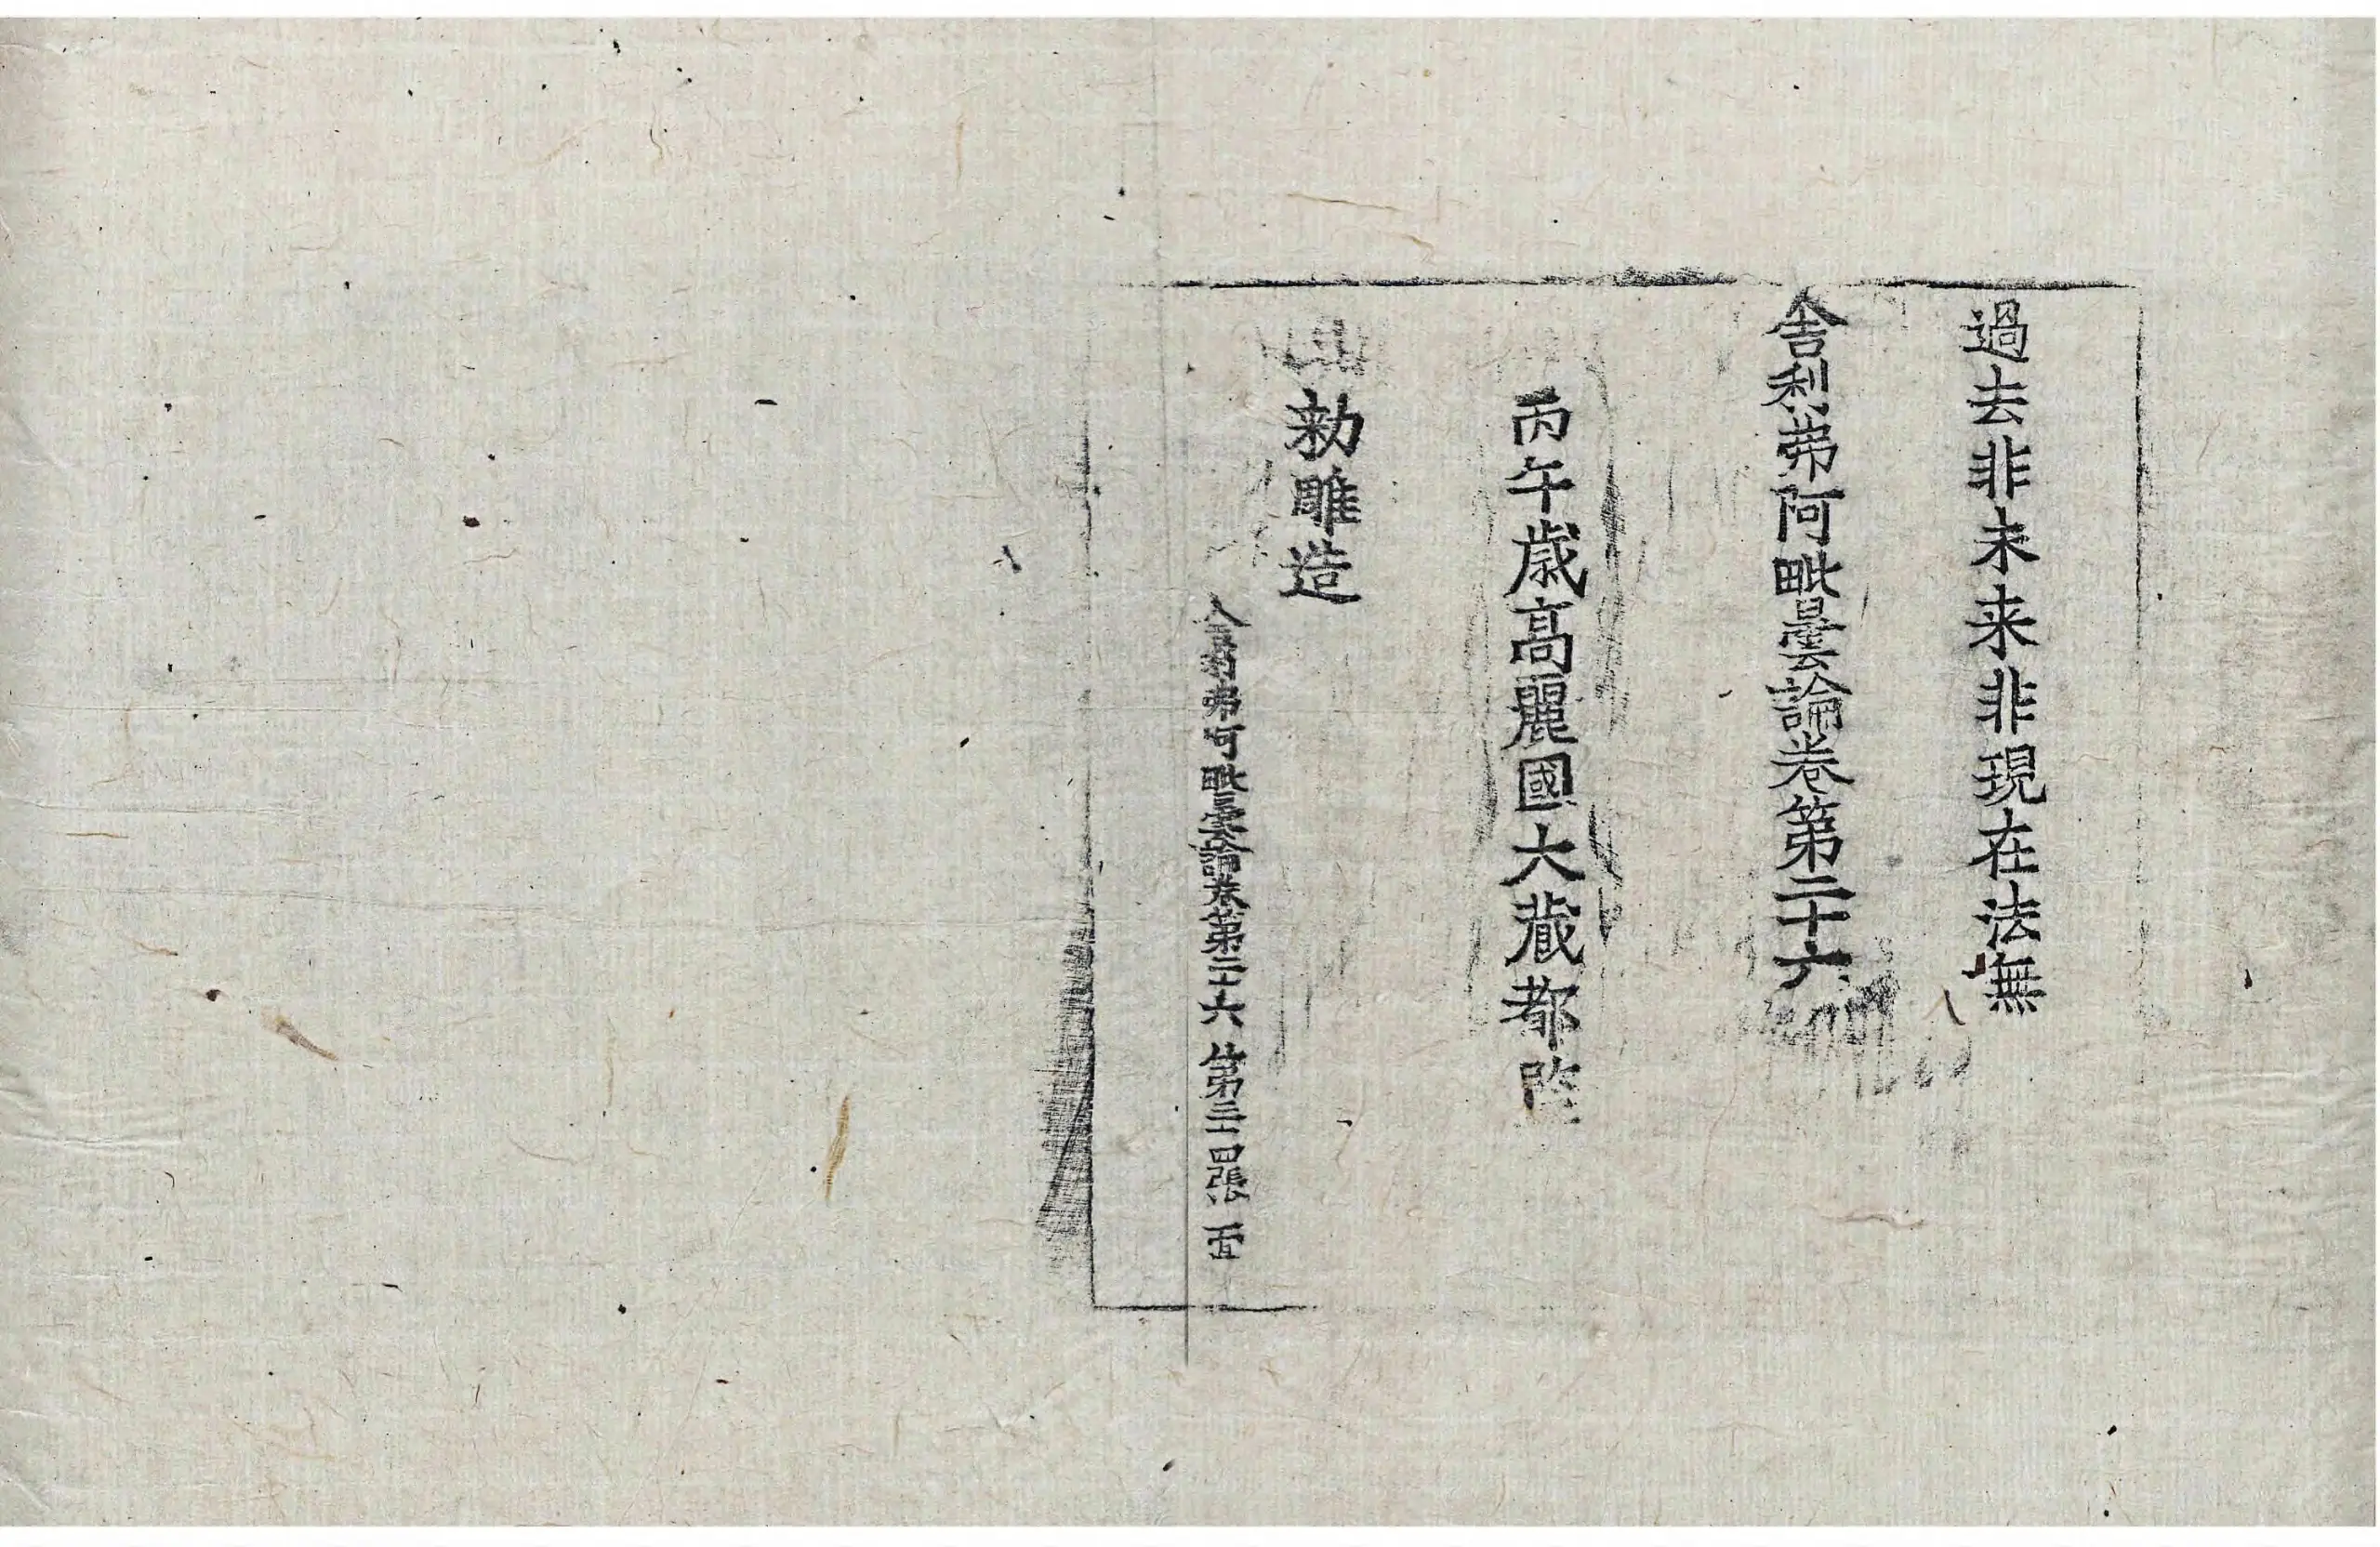 過去非未来非現在法無
舎利弗阿毗曇論卷第二十六
丙午歳高麗國大藏都監
勅雕造
舎利弗阿毗曇論卷第二十六 第三十四張 宜